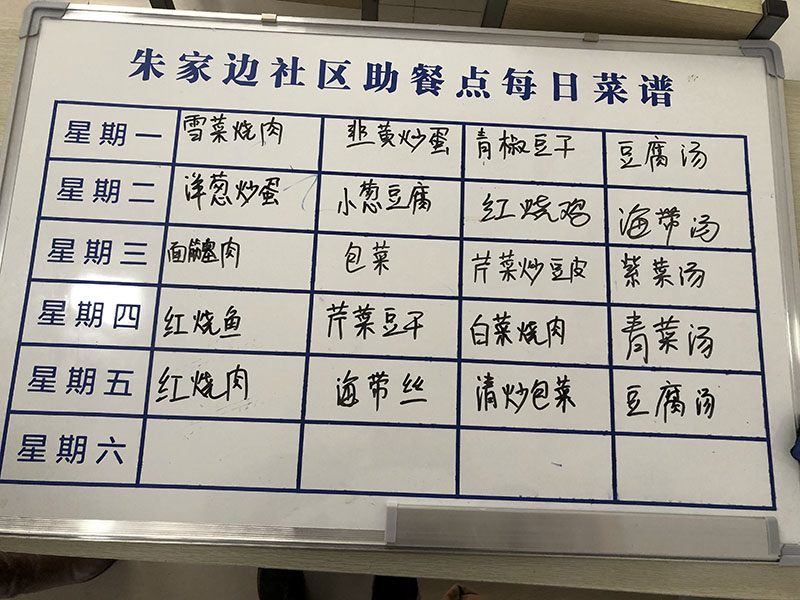 朱家边社区助餐点每日菜谱
星期一 雪菜烧肉 韭黄炒蛋 青椒豆干 豆腐汤
星期二 洋葱炒蛋 小葱豆腐 红烧鸡 海带汤
星期三 面筋塞肉 包菜 芹菜炒豆皮 紫菜汤
星期四 红烧鱼 芹菜豆干 白菜烧肉 青菜汤
星期五 红烧肉 海带丝 清炒包菜 豆腐汤
星期六